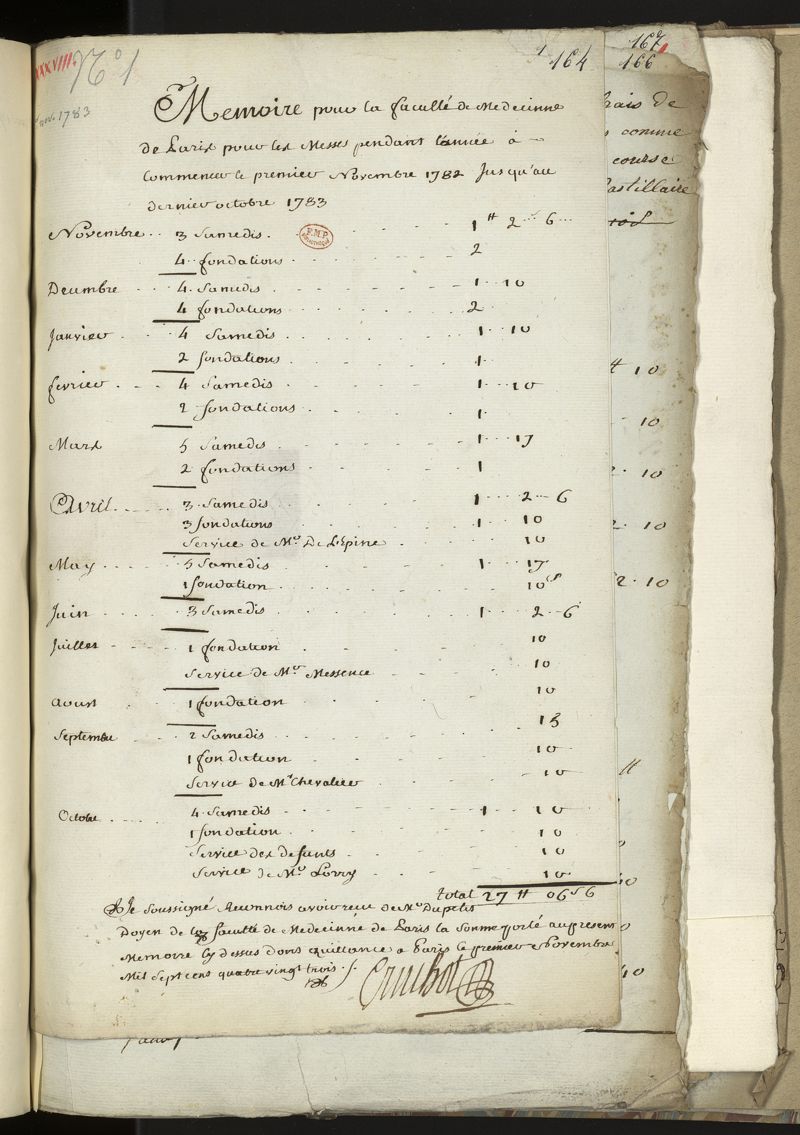 XXXVIII. N° 1
1783
164
167
166
Memoire pour la faculté de Medecinne
de Paris pour les Messes pendant l'année a
Commencer le premier Novembre 1782 Jusqu'au
dernier octobre 1783
Novembre 3 Samedis 1 ₶ 2 s 6
4 fondations 2
Decembre 4 Samedis 1 10
4 fondations 2
Janvier 4 Samedis 1 10
2 fondations 1
fevrier 4 Samedis 1 10
2 fondations 1
Mars 5 Samedis 1 17
2 fondations 1
Avril 3 Samedis 1 2 6
3 fondations 1 10
Service de Mr. De L'Epine 10
May 5 Samedis 1 17
1 fondation 10 s
Juin 3 Samedis 1 2 6
Juillet 1 fondation 10
Service de Mr. Messence 10
Aoust 1 fondation 10
Septembre 2 Samedis 15
1 fondation 10
Service de Mr Chevalier 10
Octobre 4 Samedis 1 10
1 fondation 10
Service des defunts 10
Service de Mr. Lorry 10
total 27 ₶ 06 s 6
Je soussigné Reconnois avoir recu de Mr.
Doyen de la faculté de Medecinne de Paris la somme porté au present
Memoire cy dessus dont quittance a Paris le premier Novembre
Mil sept cens quatre vingt trois
F.M.P.
frais de
comme
course
Pastillaire
₶ 10
10
2 10
2 10
2 10
₶